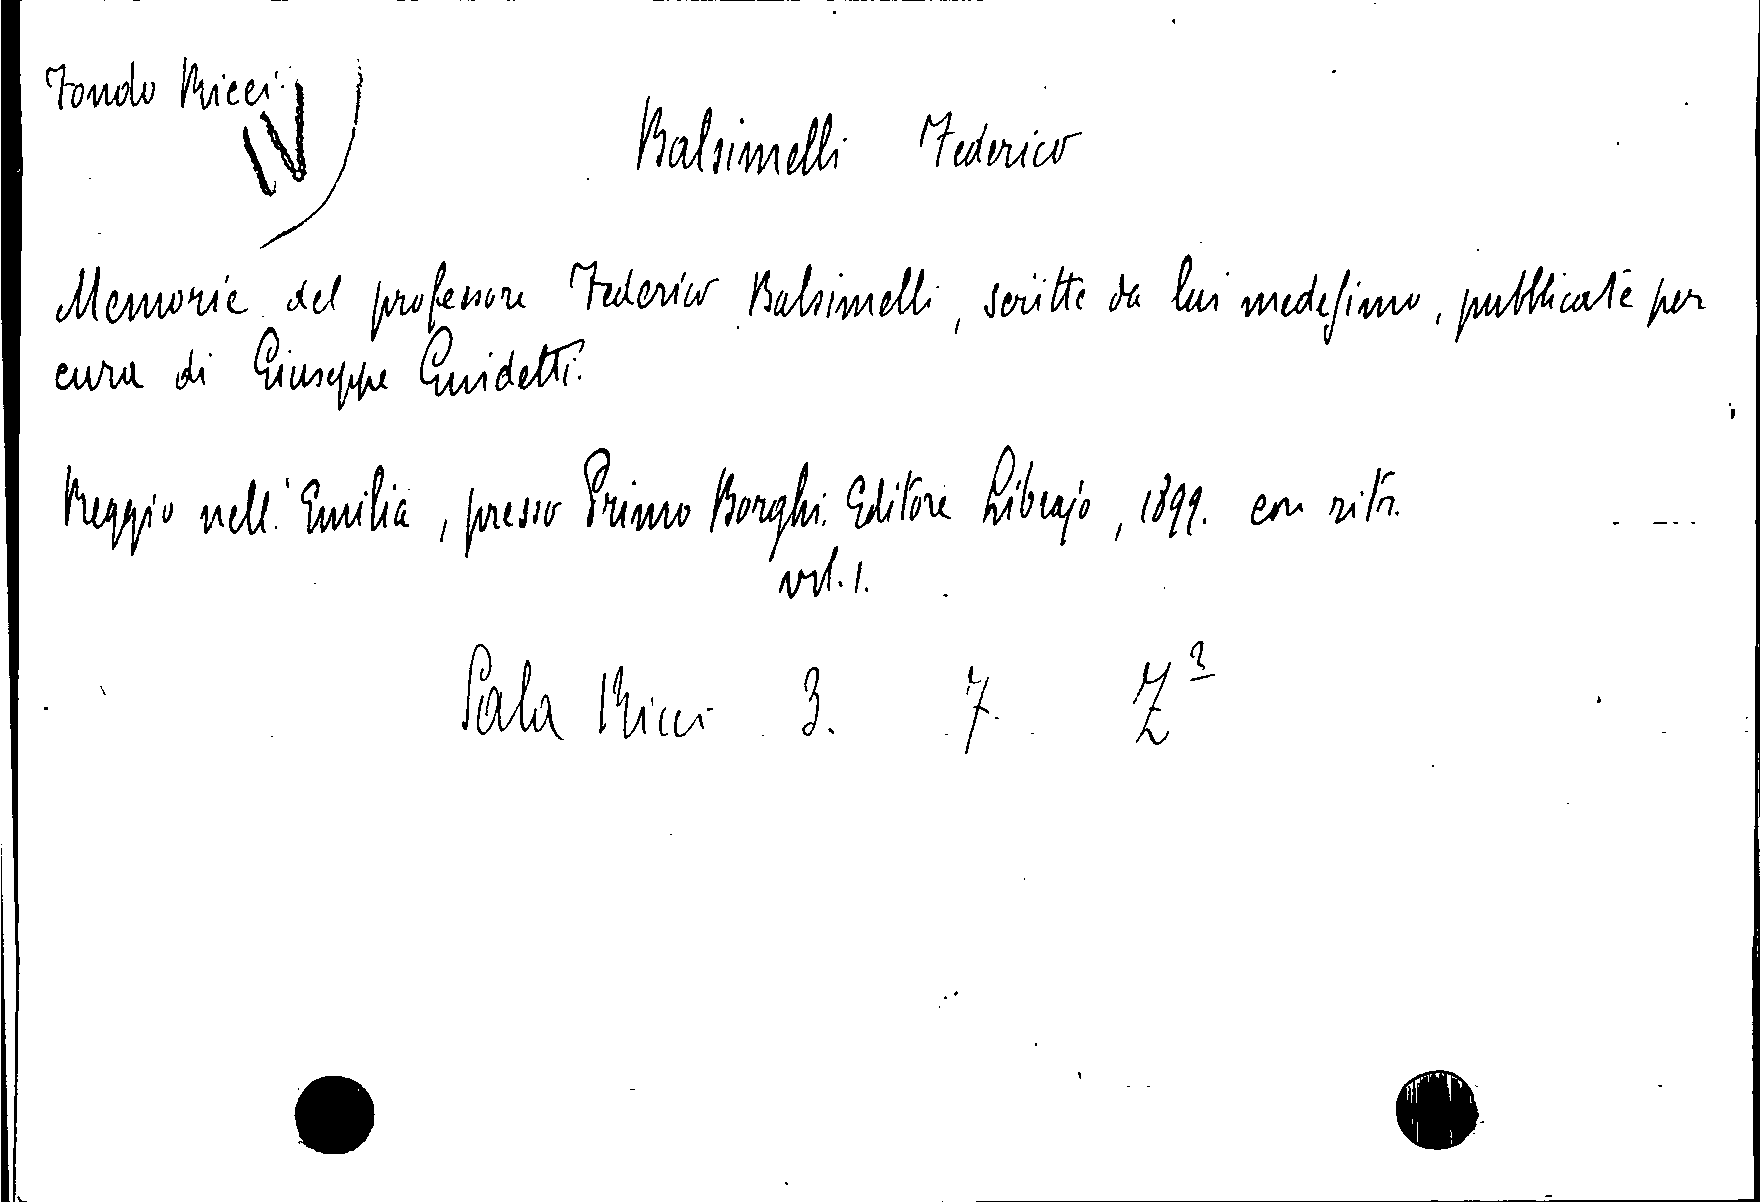 Fondo Ricci.
IV
Balsimelli Federico
Memorie del professore Federico Balsimelli, scritte da lui medesimo, pubblicate per
cura di Giuseppe Guidetti.
Reggio nell'Emilia, presso Primo Borghi. Editore Librajo, 1899. con ritr.
vol. 1.
Sala Ricci 3. 7. Z³